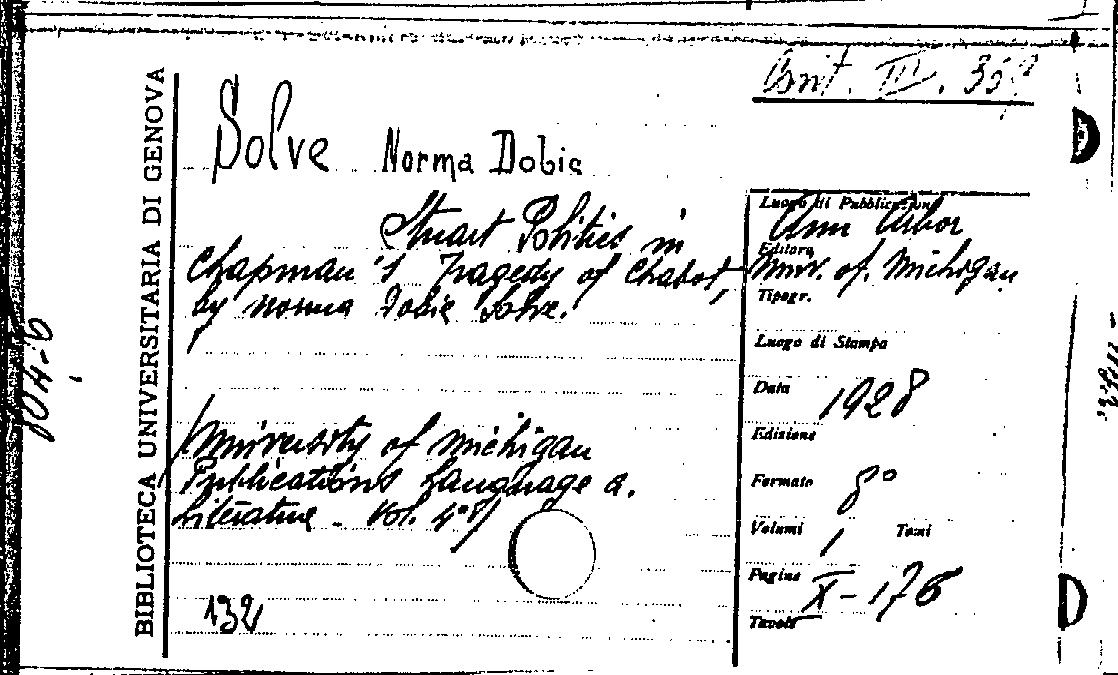 BIBLIOTECA UNIVERSITARIA DI GENOVA
Cont. III. 35
Solve Norma Dobie
Stuart Politics in
Chapman's Tragedy of Chabot,
by Norma Dobie Solve.
(University of Michigan
Publications Language a.
Literature - Vol. 4°)
132
Luogo di Pubblicazione
Ann Arbor
Editore
Univ. of. Michigan
Tipogr.
Luogo di Stampa
Data 1928
Edizione
Formato 8°
Volumi 1 Tomi
Pagine X-176
Tavole